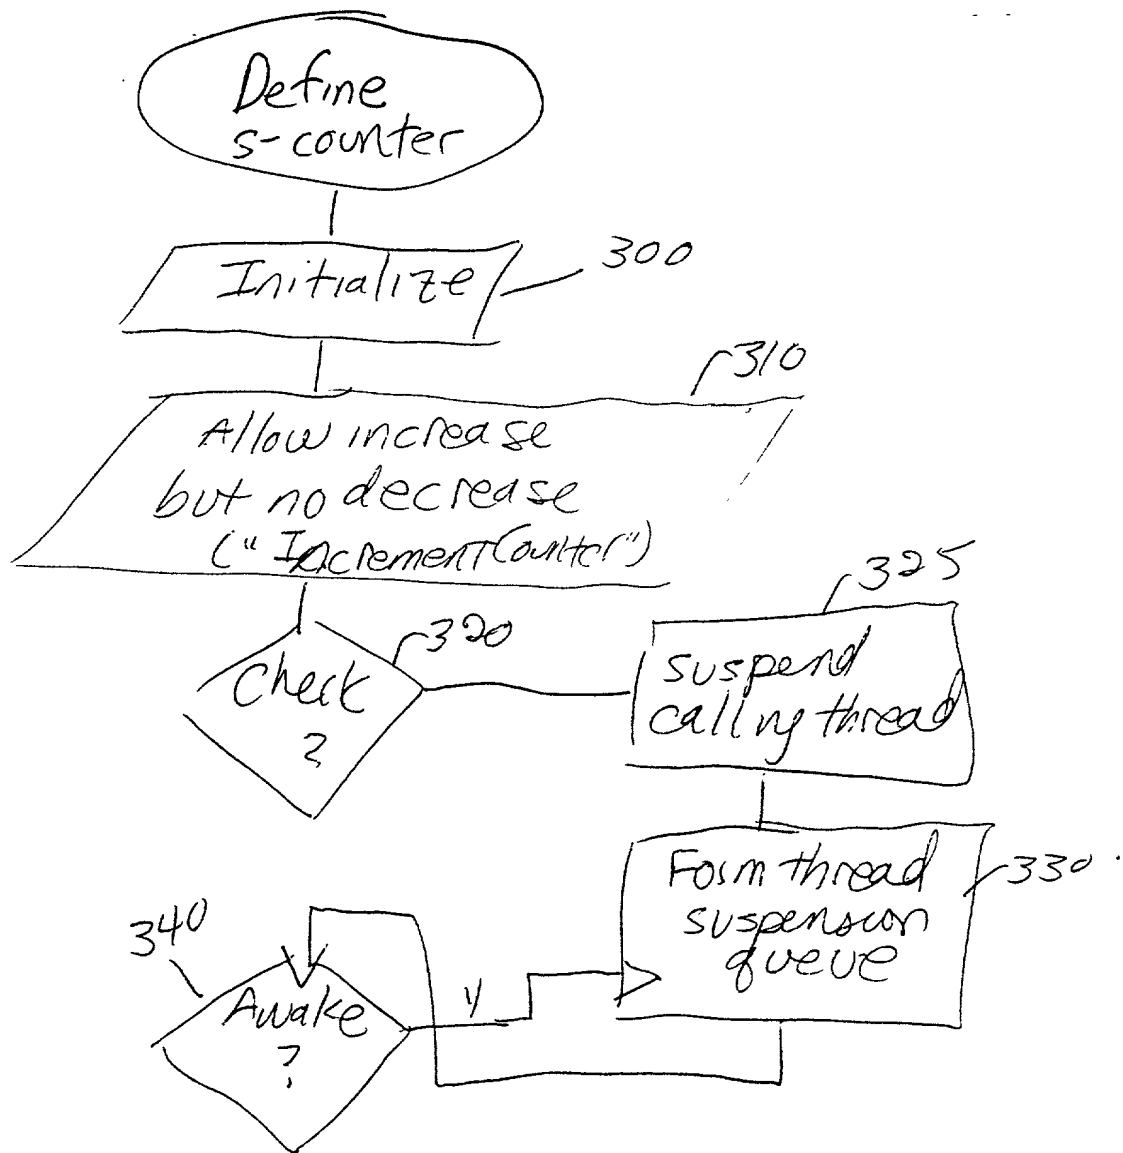 Define
s-counter
Initialize
300
310
Allow increase
but no decrease
("IncrementCounter")
320
325
Check
?
suspend
calling thread
Form thread
suspension
queue
330
340
Awake
?
y